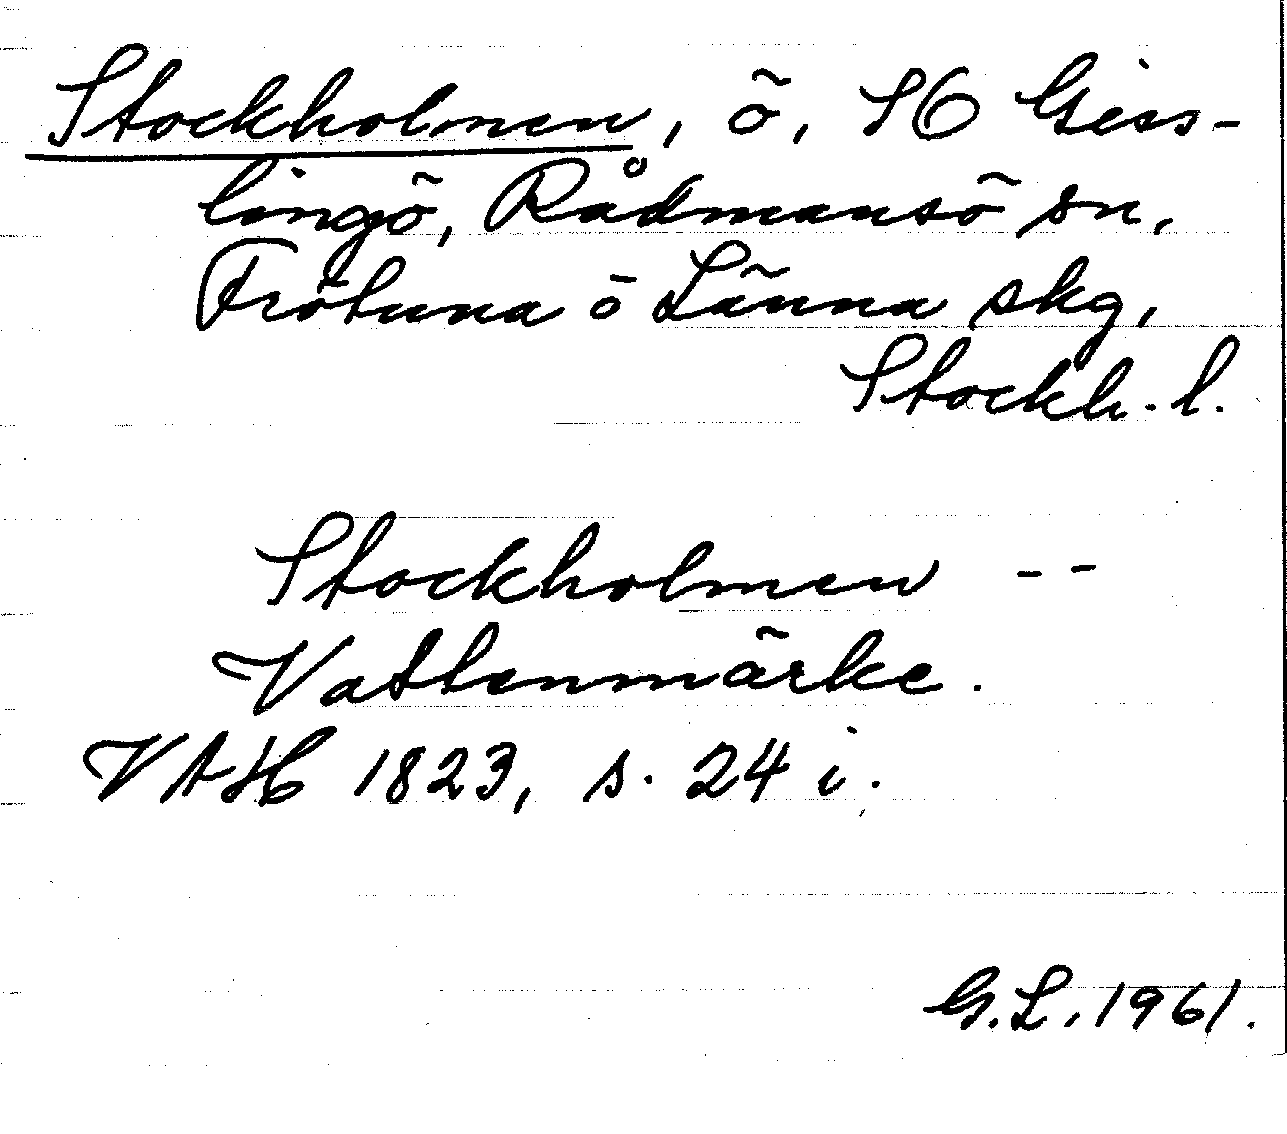 Stockholmen, ö, SO Giss-
lingö, Rådmansö sn,
Frötuna o Länna skg,
Stockh. l.
Stockholmen --
Vattenmärke.
VAH 1823, s. 24 i.
G.L. 1961.